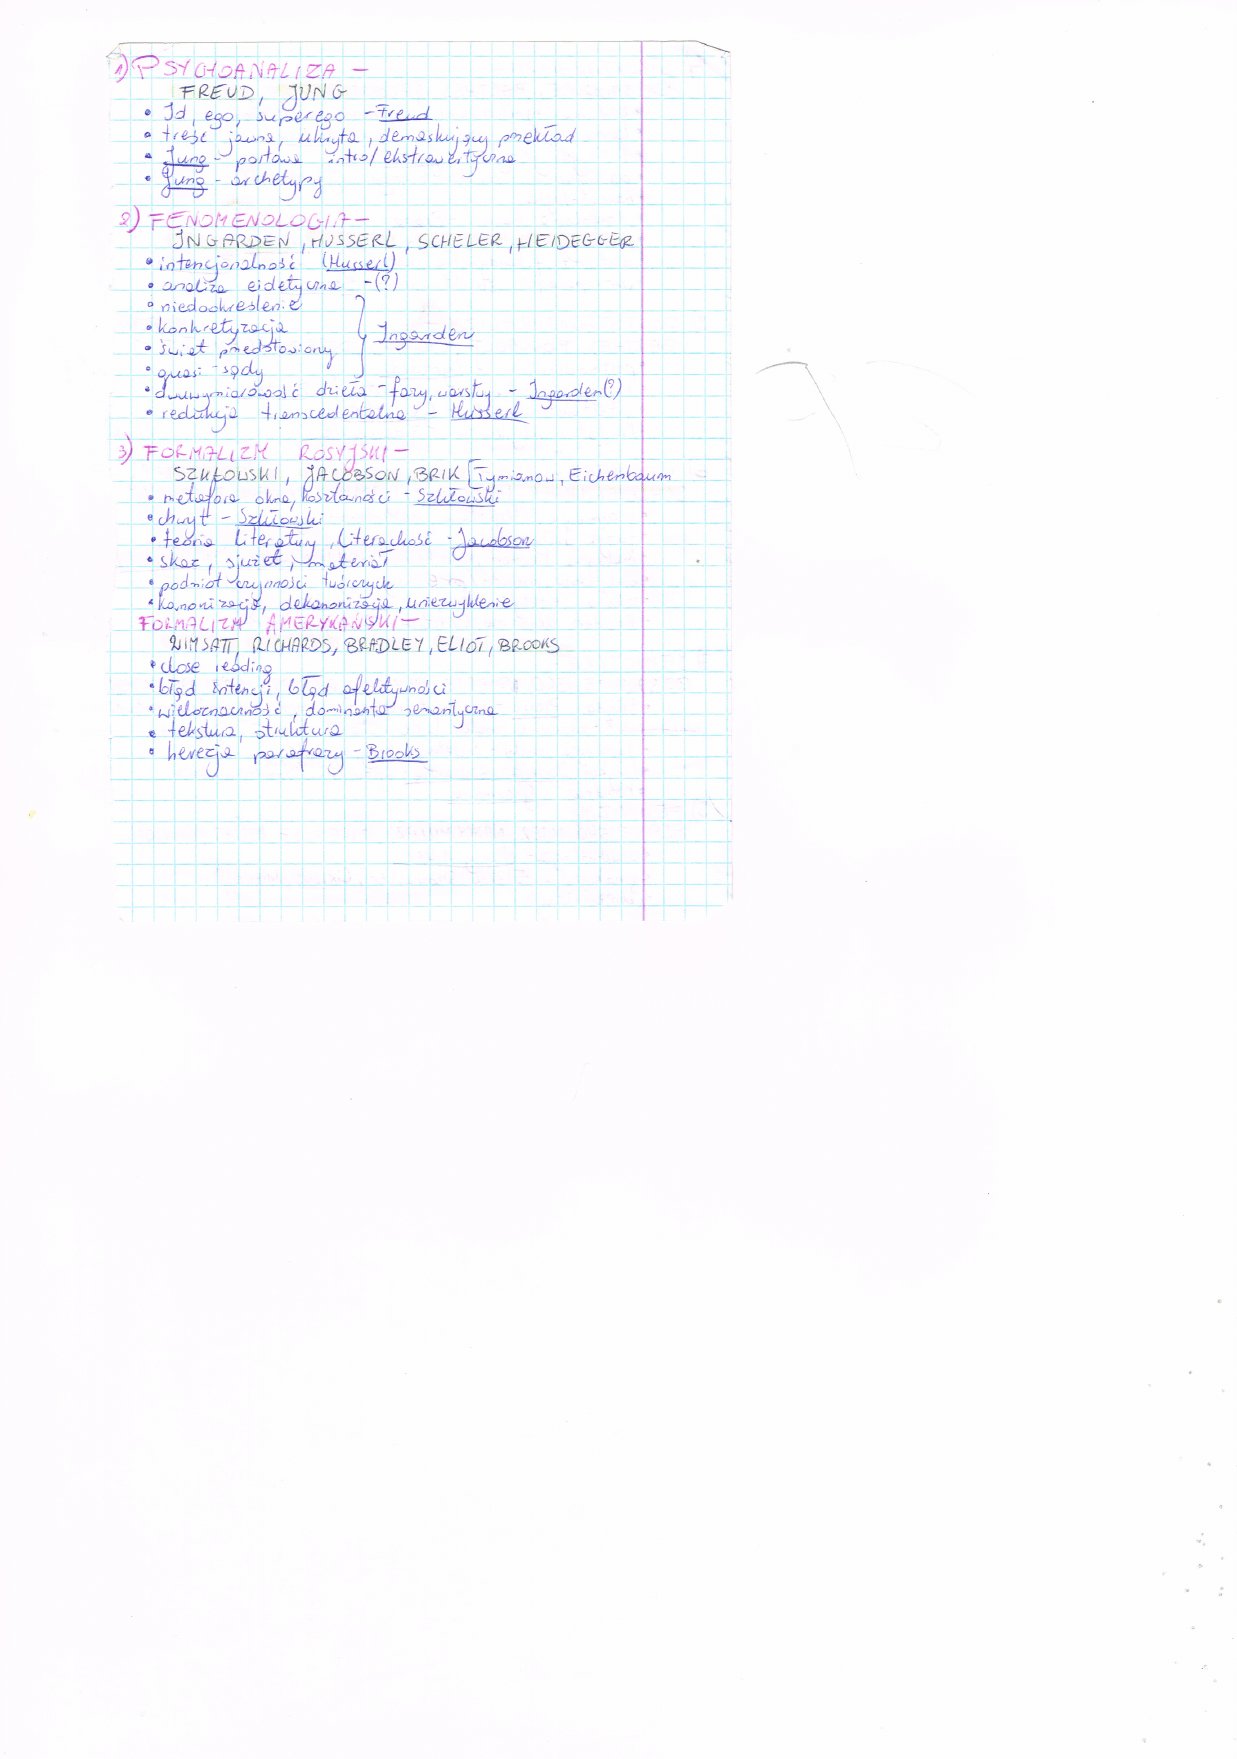 1) PSYCHOANALIZA –
FREUD, JUNG
• Id, ego, superego – Freud
• treść jawna, ukryta, demaskujący przekład
• Jung – postawa intro/ekstrawertyczna
• Jung – archetypy
2) FENOMENOLOGIA –
INGARDEN, HUSSERL, SCHELER, HEIDEGGER
• intencjonalność (Husserl)
• analiza eidetyczna – (?)
• niedookreślenie
• konkretyzacja
Ingarden
• świat przedstawiony
• quasi-sądy
• dwuwymiarowość dzieła – fazy, warstwy – Ingarden(?)
• redukcja transcedentalna – Husserl
3) FORMALIZM ROSYJSKI –
SZKŁOWSKI, JACOBSON, BRIK Tynianow, Eichenbaum
• metafora okna, kształności – Szkłowski
• chwyt – Szkłowski
• teoria literatury, literackość – Jacobson
• skaz, sjużet, materiał
• podmiot czynności twórczych
• kanonizacja, dekanonizacja, uniezwyklenie
FORMALIZM AMERYKAŃSKI –
WIMSATT, RICHARDS, BRADLEY, ELIOT, BROOKS
• close reading
• błąd intencji, błąd afektywności
• wieloznaczność, dominanta semantyczna
• tekstura, struktura
• herezja parafrazy – Brooks